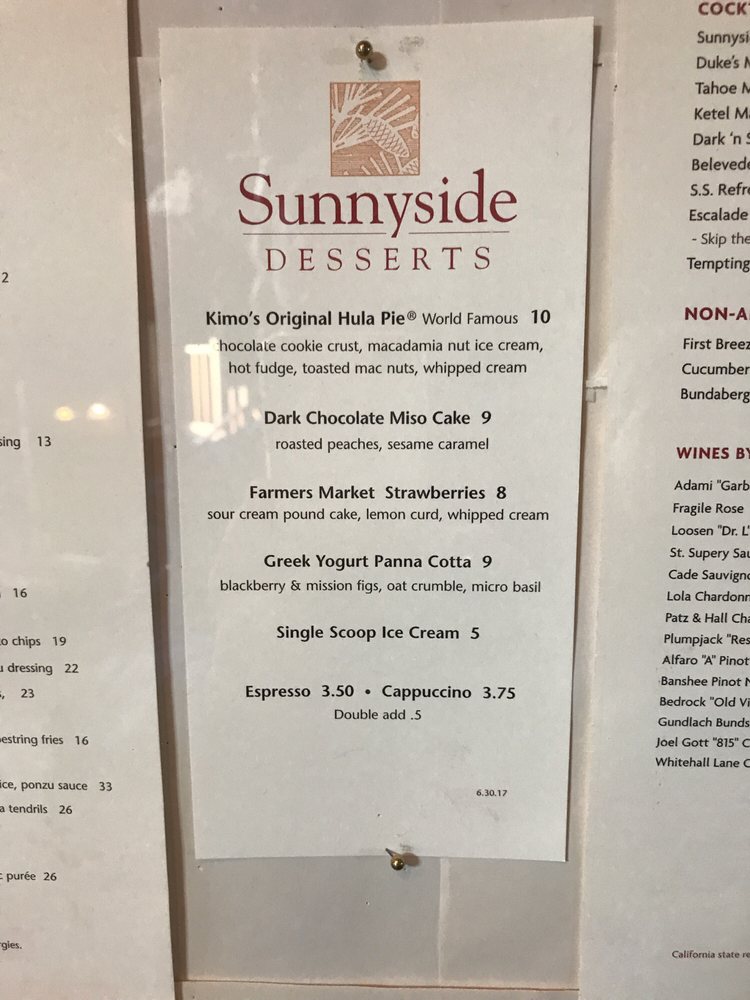 2
sing 13
16
to chips 19
dressing 22
23
fries 16
ice, ponzu sauce 33
tendrils 26
purée 26
Sunnyside
DESSERTS
Kimo's Original Hula Pie® World Famous 10
chocolate cookie crust, macadamia nut ice cream,
hot fudge, toasted mac nuts, whipped cream
Dark Chocolate Miso Cake 9
roasted peaches, sesame caramel
Farmers Market Strawberries 8
sour cream pound cake, lemon curd, whipped cream
Greek Yogurt Panna Cotta 9
blackberry & mission figs, oat crumble, micro basil
Single Scoop Ice Cream 5
Espresso 3.50 • Cappuccino 3.75
Double add .5
6.30.17
COCK
Sunnysi
Duke's M
Tahoe M
Ketel Ma
Dark 'n S
Belevede
S.S. Refre
Escalade
- Skip the
Tempting
NON-A
First Breez
Cucumber
Bundaberg
WINES BY
Adami "Garb
Fragile Rose
Loosen "Dr. L"
St. Supery Sau
Cade Sauvigno
Lola Chardonn
Patz & Hall Cha
Plumpjack "Res
Alfaro "A" Pinot
Banshee Pinot N
Bedrock "Old Vi
Gundlach Bunds
Joel Gott "815" C
Whitehall Lane C
California state re